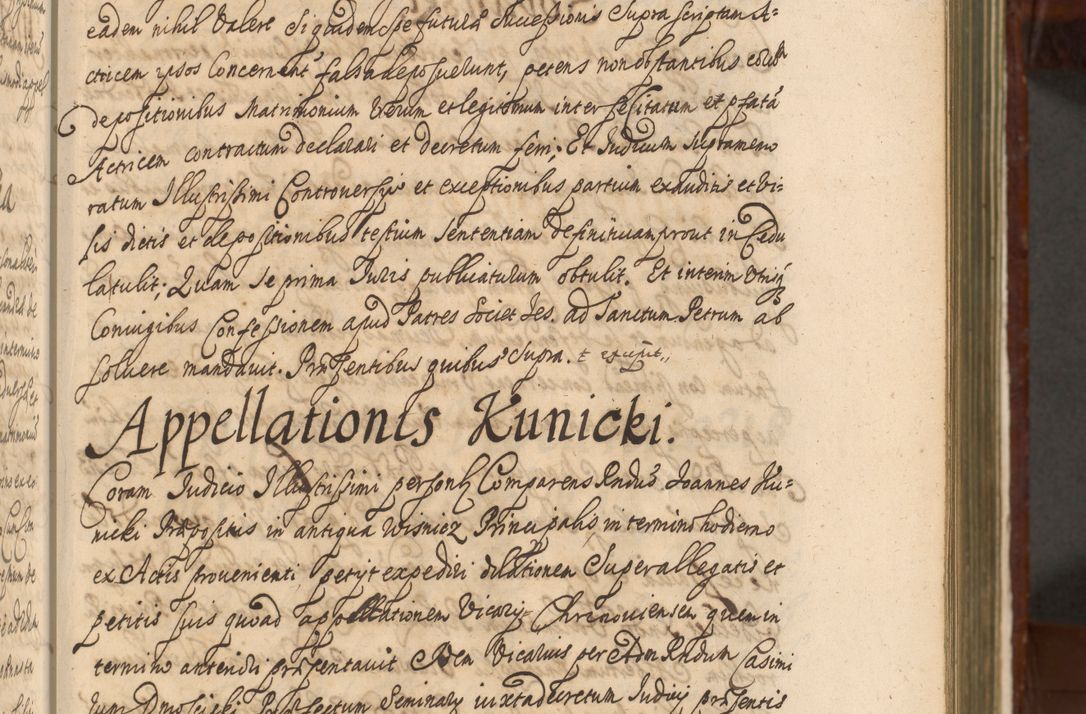 eadem nihil valere siquidem spe futura successionis supra scriptam A-
ctricem ipsos concernent falsa deposuerunt, petens non obstantibus eorum
depositionibus Matrimonium verum et legitimum inter se citatum et pfatã
Actricem contractum declarari et decretum ferri; Et Judicium suprameno
ratum Illustrissimi Controversijs et exceptionibus partium exauditis et vi-
sis dictis et depositionibus testium sententiam definitivam prout in Cedu
la tulit; Quam se prima Juris publicaturum obtulit. Et interim utriusq
Coniugibus Confessionem apud Patres Societ Jes. ad Sanctum Petrum ab
solvere mandavit. Præsentibus quibus supra.
Appellationis Kunicki.
Coram Judicio Illustrissimi personlr Comparens Rndus Joannes Ku-
nicki Præpositus in antiqua Wisnicz Principalis in termino hodierno
ex Actis provenienti petyt expediri dilationem superallegatis et
petitis suis quoad appellationem Vicary Chronoviensem quem in
termino anteriori præsentavit Idem Vicarius per Adm Rndum Casimi
rum Præfectum Seminary iuxta decretum Judicij præsentis